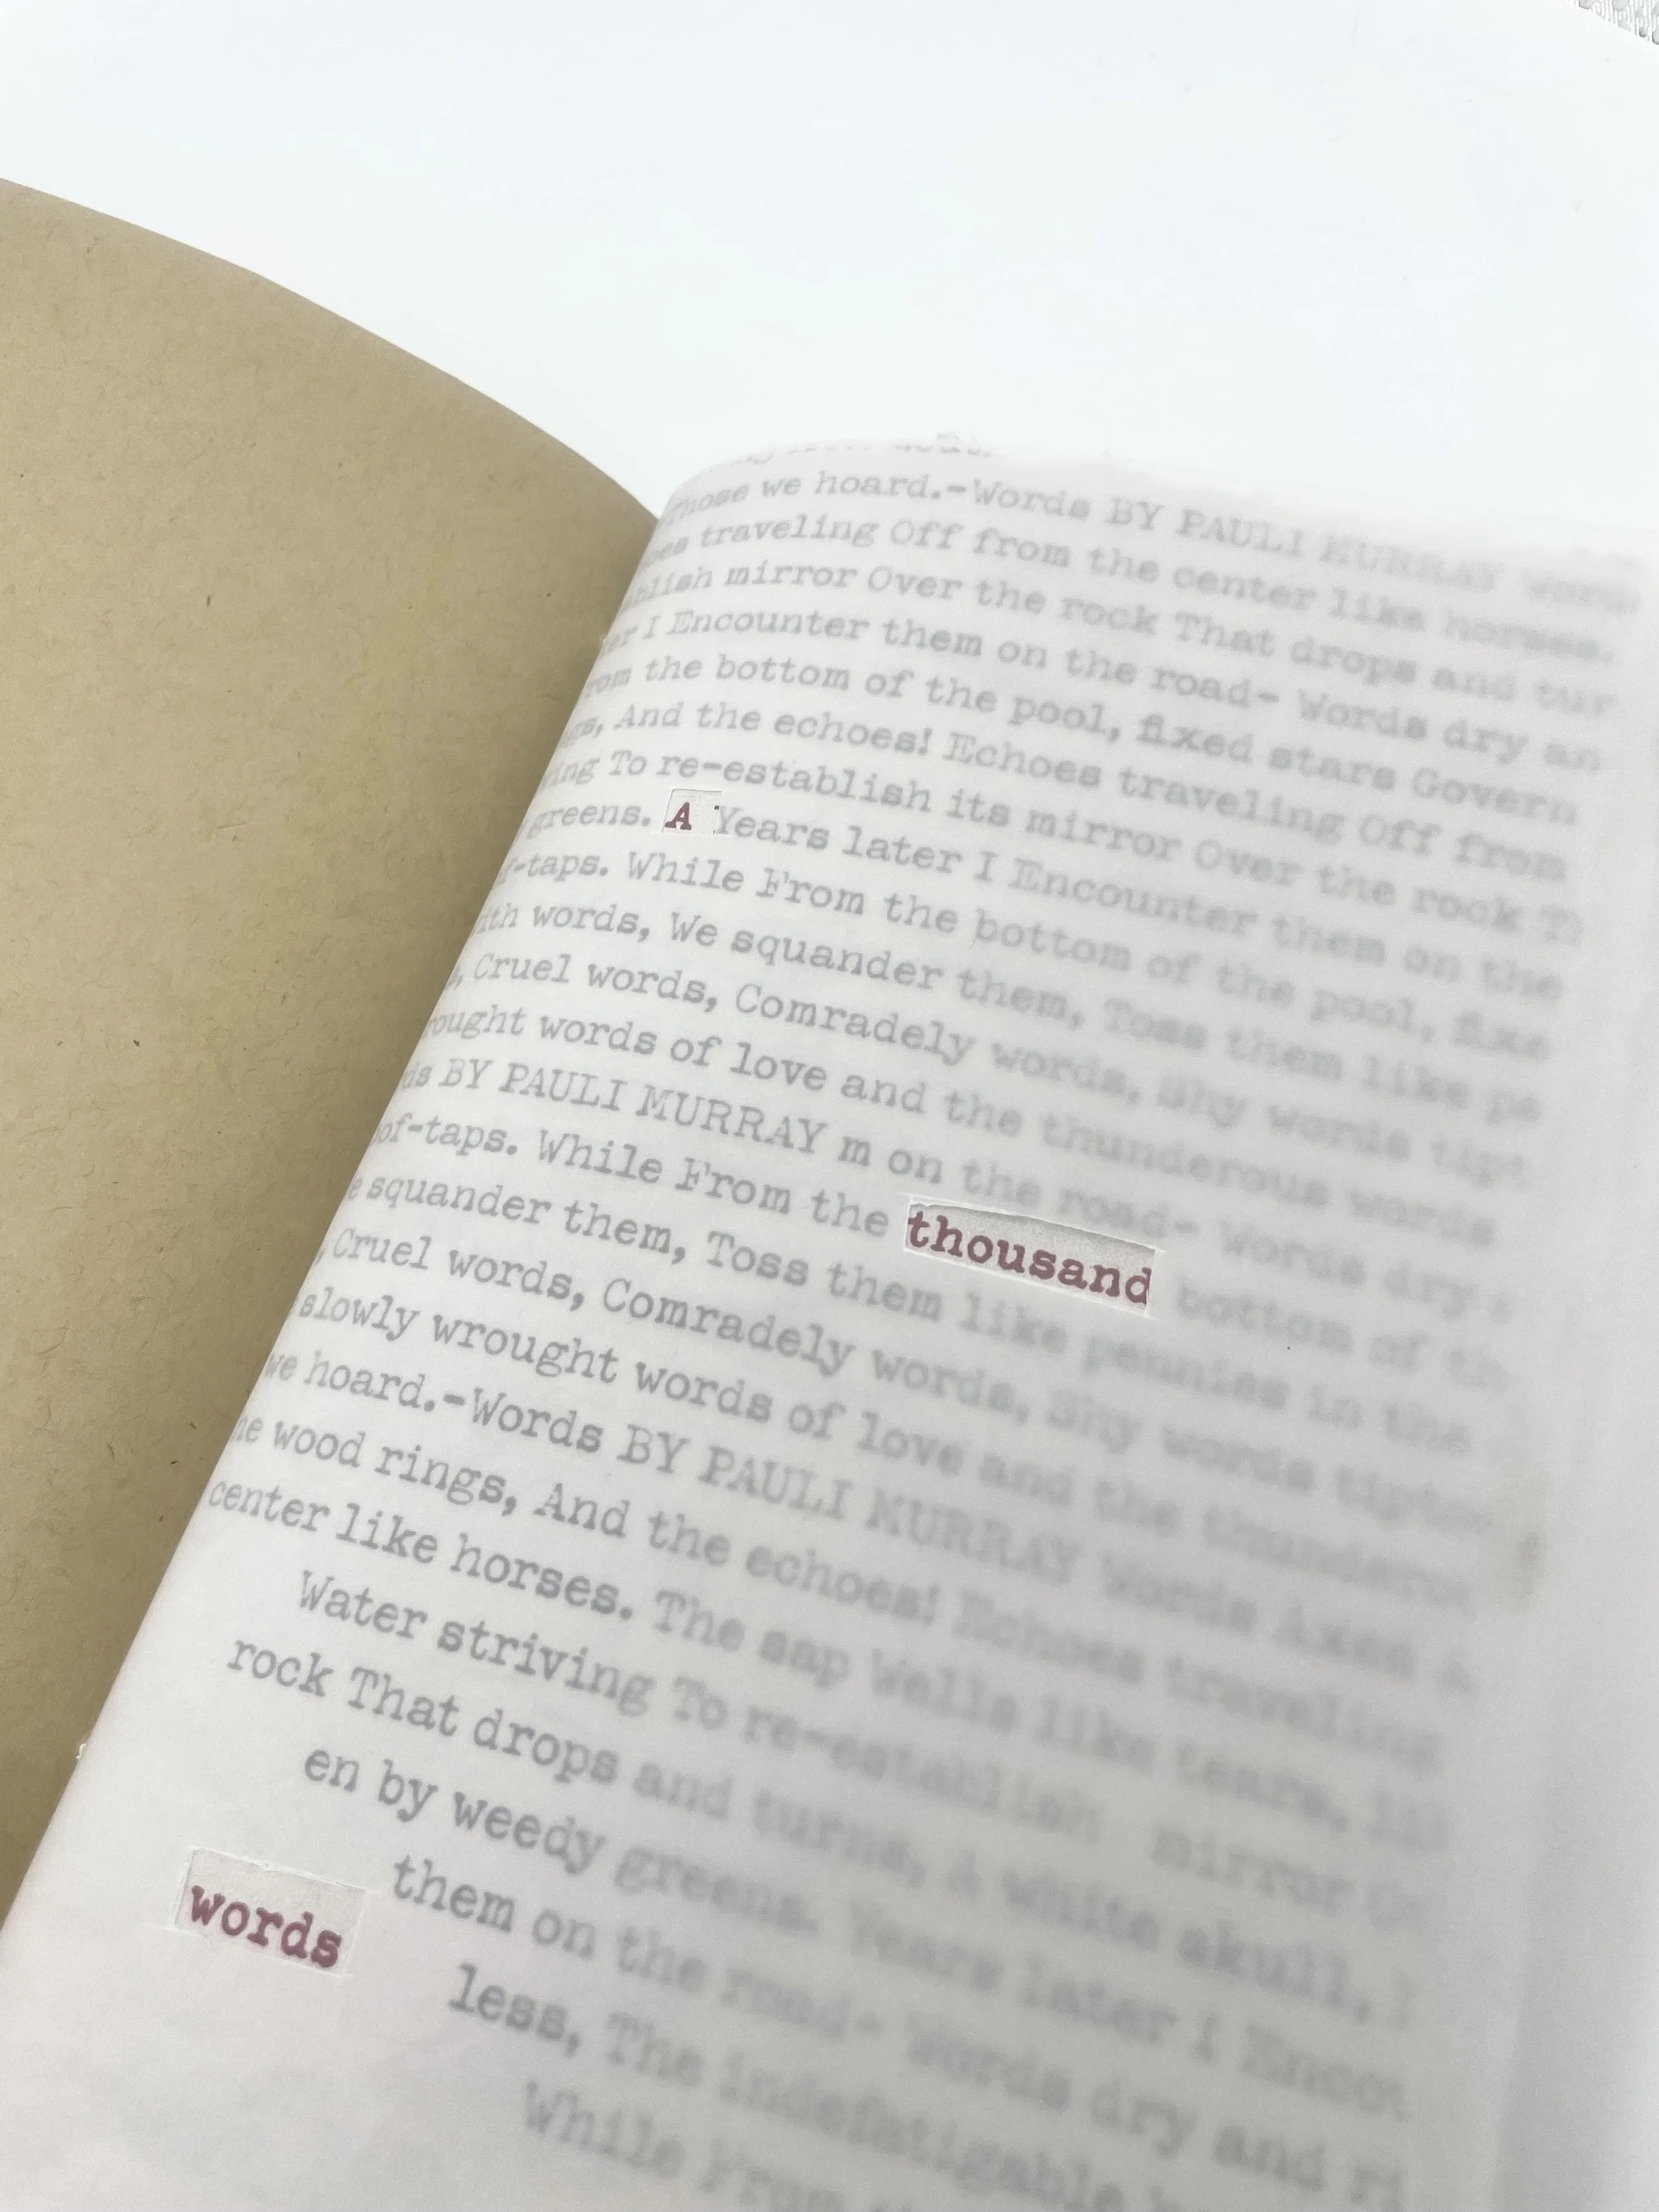 Those we hoard.-Words BY PAULI MURRAY Words
traveling Off from the center like horses.
mirror Over the rock That drops and tur
I Encounter them on the road- Words dry an
om the bottom of the pool, fixed stars Govern
s, And the echoes! Echoes traveling Off from
ing To re-establish its mirror Over the rock T
greens. A Years later I Encounter them on the
-taps. While From the bottom of the pool, fixe
ith words, We squander them, Toss them like pe
, Cruel words, Comradely words, Shy words tipt
ought words of love and the thunderous words
ds BY PAULI MURRAY m on the road- Words dry
of-taps. While From the thousand bottom of th
e squander them, Toss them like pennies in the
, Cruel words, Comradely words, Shy words tipto
slowly wrought words of love and the thundero
we hoard.-Words BY PAULI MURRAY Words Axes A
he wood rings, And the echoes! Echoes traveling
center like horses. The sap Wells like tears, li
Water striving To re-establish mirror Ov
rock That drops and turns, A white skull,
en by weedy greens. Years later I Encou
words them on the road- Words dry and ri
less, The indefatigable
While From